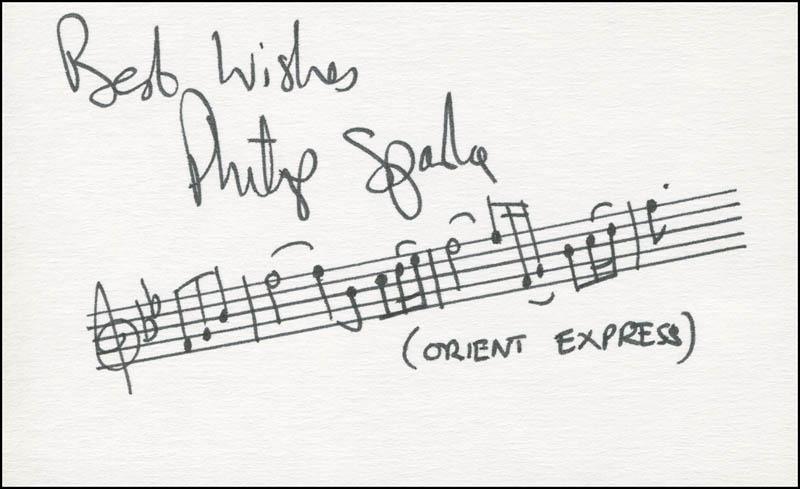 Best Wishes
Philip Sparke
(ORIENT EXPRESS)